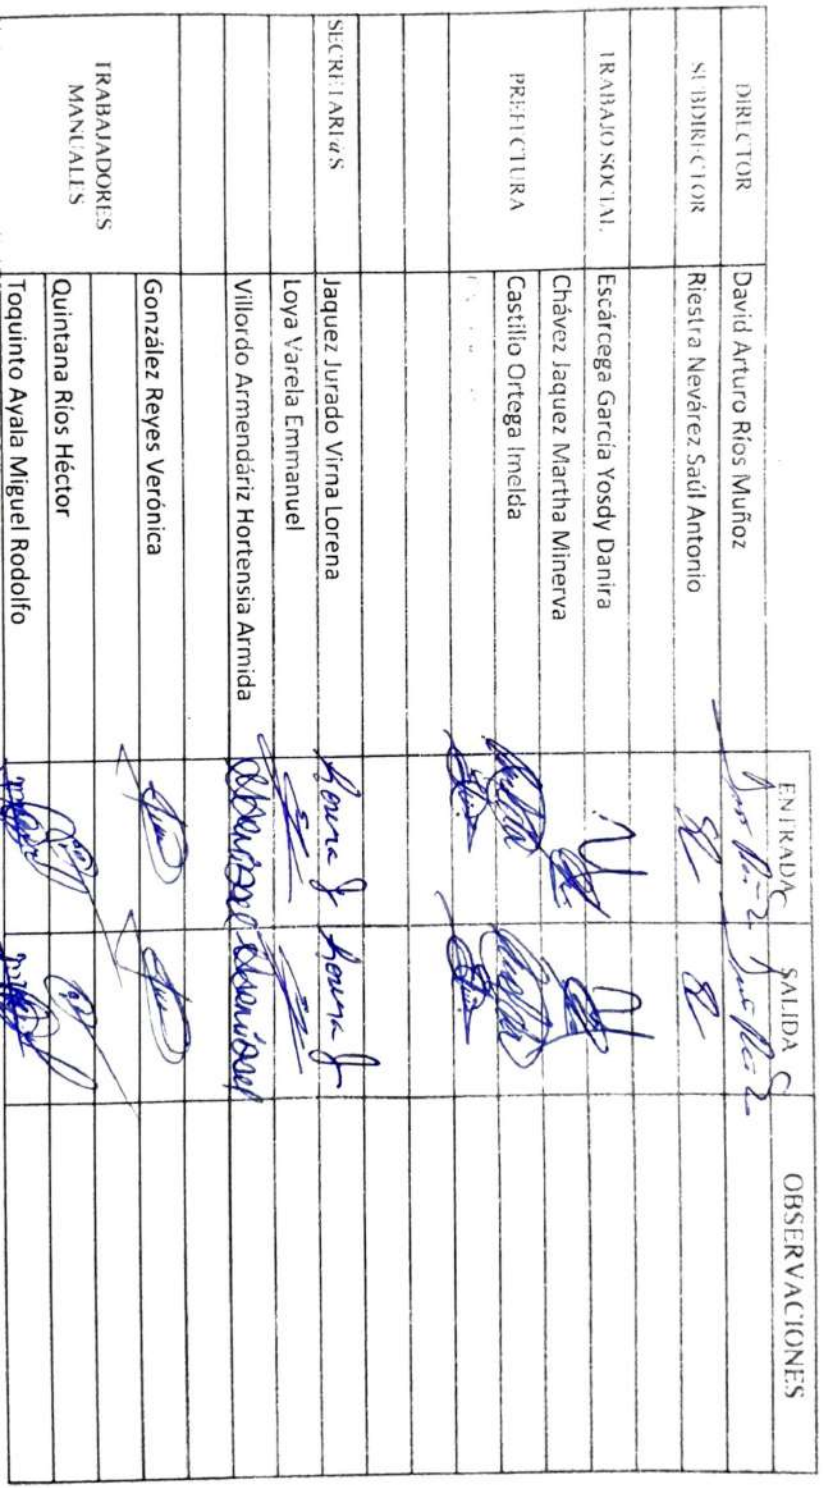 ENTRADA SALIDA OBSERVACIONES
DIRECTOR David Arturo Ríos Muñoz
SUBDIRECTOR Riestra Nevárez Saúl Antonio
TRABAJO SOCIAL Escárcega García Yosdy Danira
Chávez Jaquez Martha Minerva
PREFECTURA Castillo Ortega Imelda
SECRETARIAS Jaquez Jurado Virna Lorena Lorena J Lorena J
Loya Varela Emmanuel
Villordo Armendáriz Hortensia Armida
González Reyes Verónica
TRABAJADORES
MANUALES
Quintana Ríos Héctor
Toquinto Ayala Miguel Rodolfo